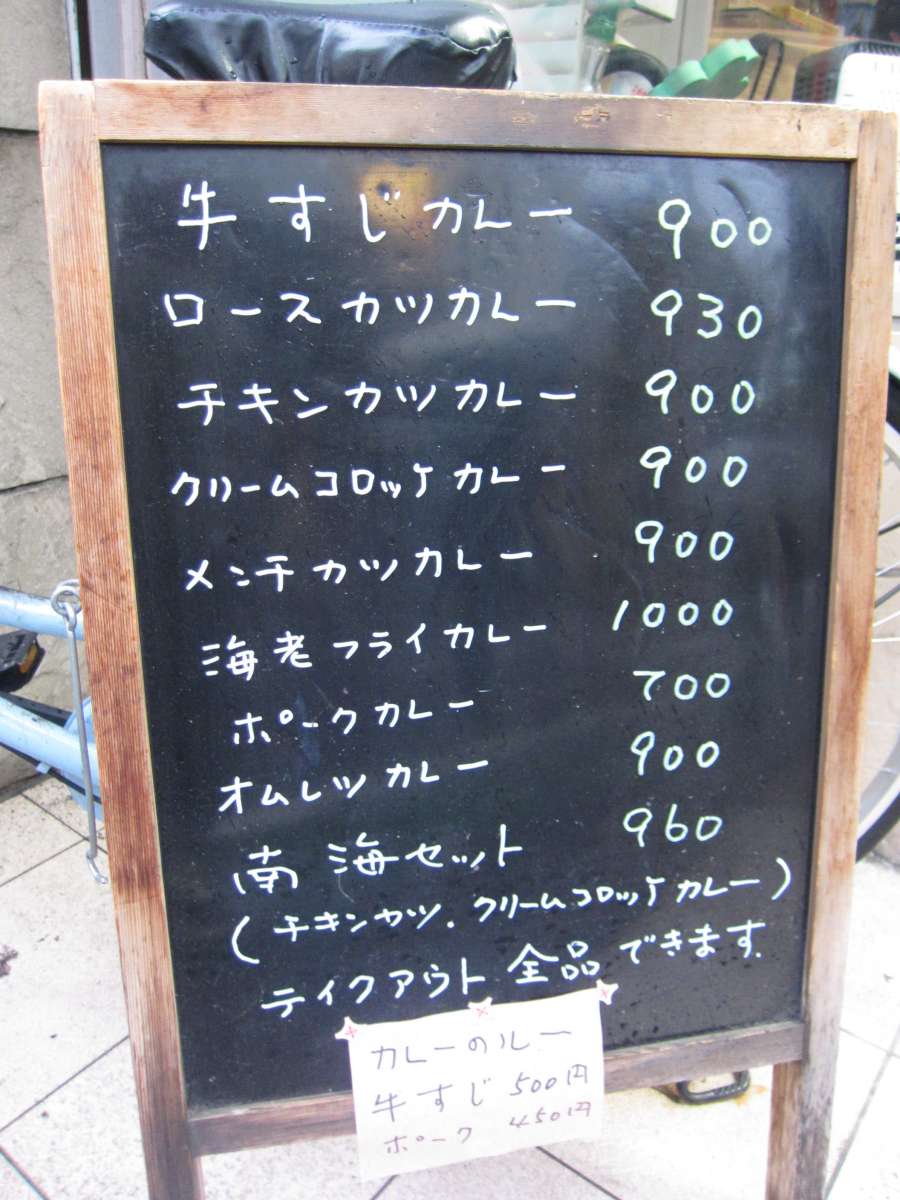 牛すじカレー 900
ロースカツカレー 930
チキンカツカレー 900
クリームコロッケカレー 900
メンチカツカレー 900
海老フライカレー 1000
ポークカレー 700
オムレツカレー 900
南海セット 960
(チキンカツ.クリームコロッケカレー)
テイクアウト全品できます.
カレーのルー
牛すじ 500円
ポーク 450円